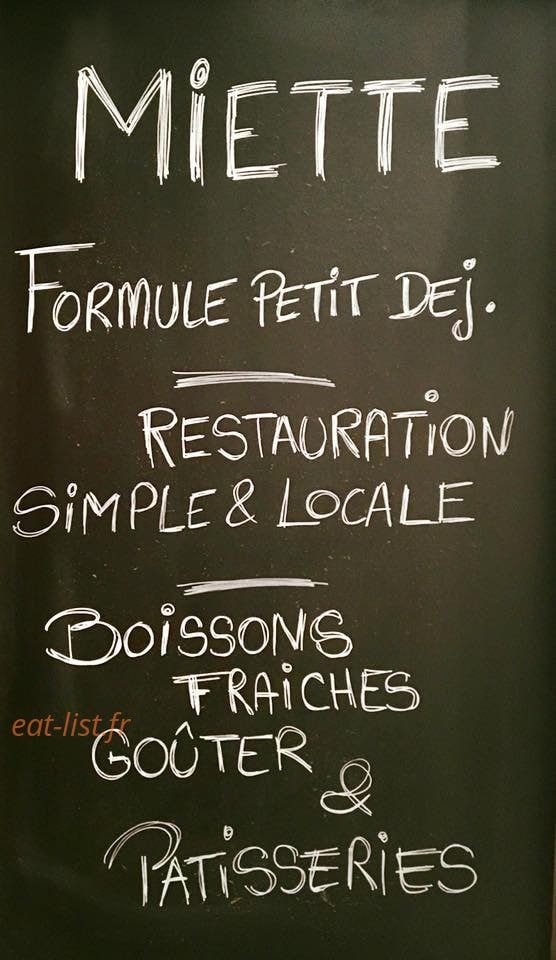 MiETTE
FORMULE PETiT DEj.
RESTAURATiON
SiMPLE & LOCALE
BOiSSONS
FRAiCHES
eat-list.fr
GOÛTER
&
PATiSSERiES